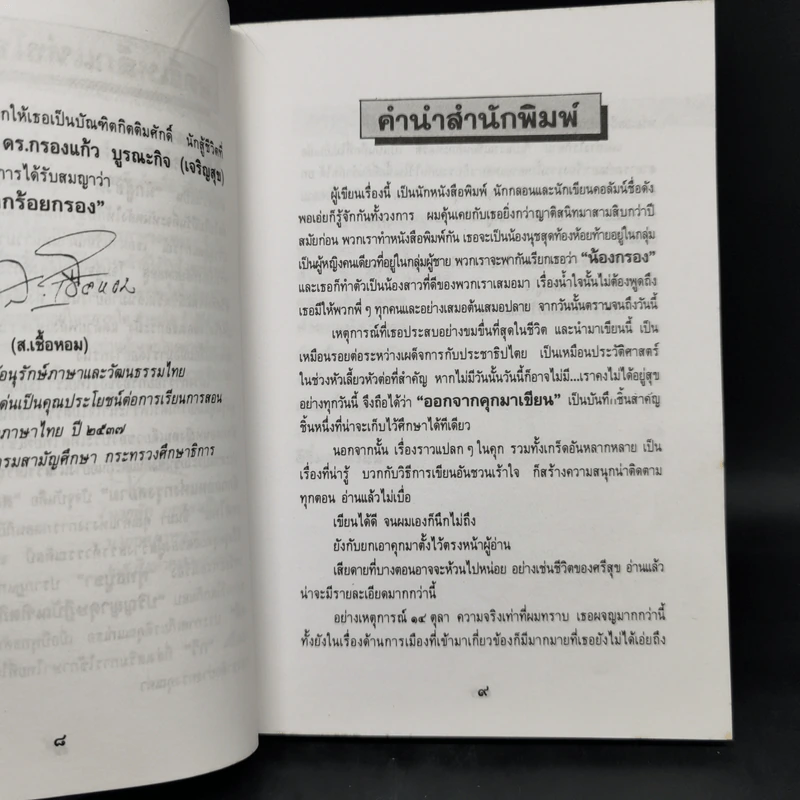 กให้เธอเป็นบัณฑิตกิตติมศักดิ์ นักสู้ชีวิตที่
ดร.กรองแก้ว บูรณะกิจ (เจริญสุข)
การได้รับสมญาว่า
กร้อยกรอง”
(ส.เชื้อหอม)
อนุรักษ์ภาษาและวัฒนธรรมไทย
ด่นเป็นคุณประโยชน์ต่อการเรียนการสอน
ภาษาไทย ปี ๒๕๓๗
รมสามัญศึกษา กระทรวงศึกษาธิการ
๘
คำนำสำนักพิมพ์
ผู้เขียนเรื่องนี้ เป็นนักหนังสือพิมพ์ นักกลอนและนักเขียนคอลัมน์ชื่อดัง
พอเอ่ยก็รู้จักกันทั้งวงการ ผมคุ้นเคยกับเธอยิ่งกว่าญาติสนิทมาสามสิบกว่าปี
สมัยก่อน พวกเราทำหนังสือพิมพ์กัน เธอจะเป็นน้องนุชสุดท้องห้อยท้ายอยู่ในกลุ่ม
เป็นผู้หญิงคนเดียวที่อยู่ในกลุ่มผู้ชาย พวกเราจะพากันเรียกเธอว่า “น้องกรอง”
และเธอก็ทำตัวเป็นน้องสาวที่ดีของพวกเราเสมอมา เรื่องน้ำใจนั้นไม่ต้องพูดถึง
เธอมีให้พวกพี่ ๆ ทุกคนและอย่างเสมอต้นเสมอปลาย จากวันนั้นตราบจนถึงวันนี้
เหตุการณ์ที่เธอประสบอย่างขมขื่นที่สุดในชีวิต และนำมาเขียนนี้ เป็น
เหมือนรอยต่อระหว่างเผด็จการกับประชาธิปไตย เป็นเหมือนประวัติศาสตร์
ในช่วงหัวเลี้ยวหัวต่อที่สำคัญ หากไม่มีวันนั้นวันนี้ก็อาจไม่มี...เราคงไม่ได้อยู่สุข
อย่างทุกวันนี้ จึงถือได้ว่า “ออกจากคุกมาเขียน” เป็นบันทึกชิ้นสำคัญ
ชิ้นหนึ่งที่น่าจะเก็บไว้ศึกษาได้ทีเดียว
นอกจากนั้น เรื่องราวแปลก ๆ ในคุก รวมทั้งเกร็ดอันหลากหลาย เป็น
เรื่องที่น่ารู้ บวกกับวิธีการเขียนอันชวนเร้าใจ ก็สร้างความสนุกน่าติดตาม
ทุกตอน อ่านแล้วไม่เบื่อ
เขียนได้ดี จนผมเองก็นึกไม่ถึง
ยังกับยกเอาคุกมาตั้งไว้ตรงหน้าผู้อ่าน
เสียดายที่บางตอนอาจจะห้วนไปหน่อย อย่างเช่นชีวิตของศรีสุข อ่านแล้ว
น่าจะมีรายละเอียดมากกว่านี้
อย่างเหตุการณ์ ๑๔ ตุลา ความจริงเท่าที่ผมทราบ เธอผจญมากกว่านี้
ทั้งยังในเรื่องด้านการเมืองที่เข้ามาเกี่ยวข้องก็มีมากมายที่เธอยังไม่ได้เอ่ยถึง
๙